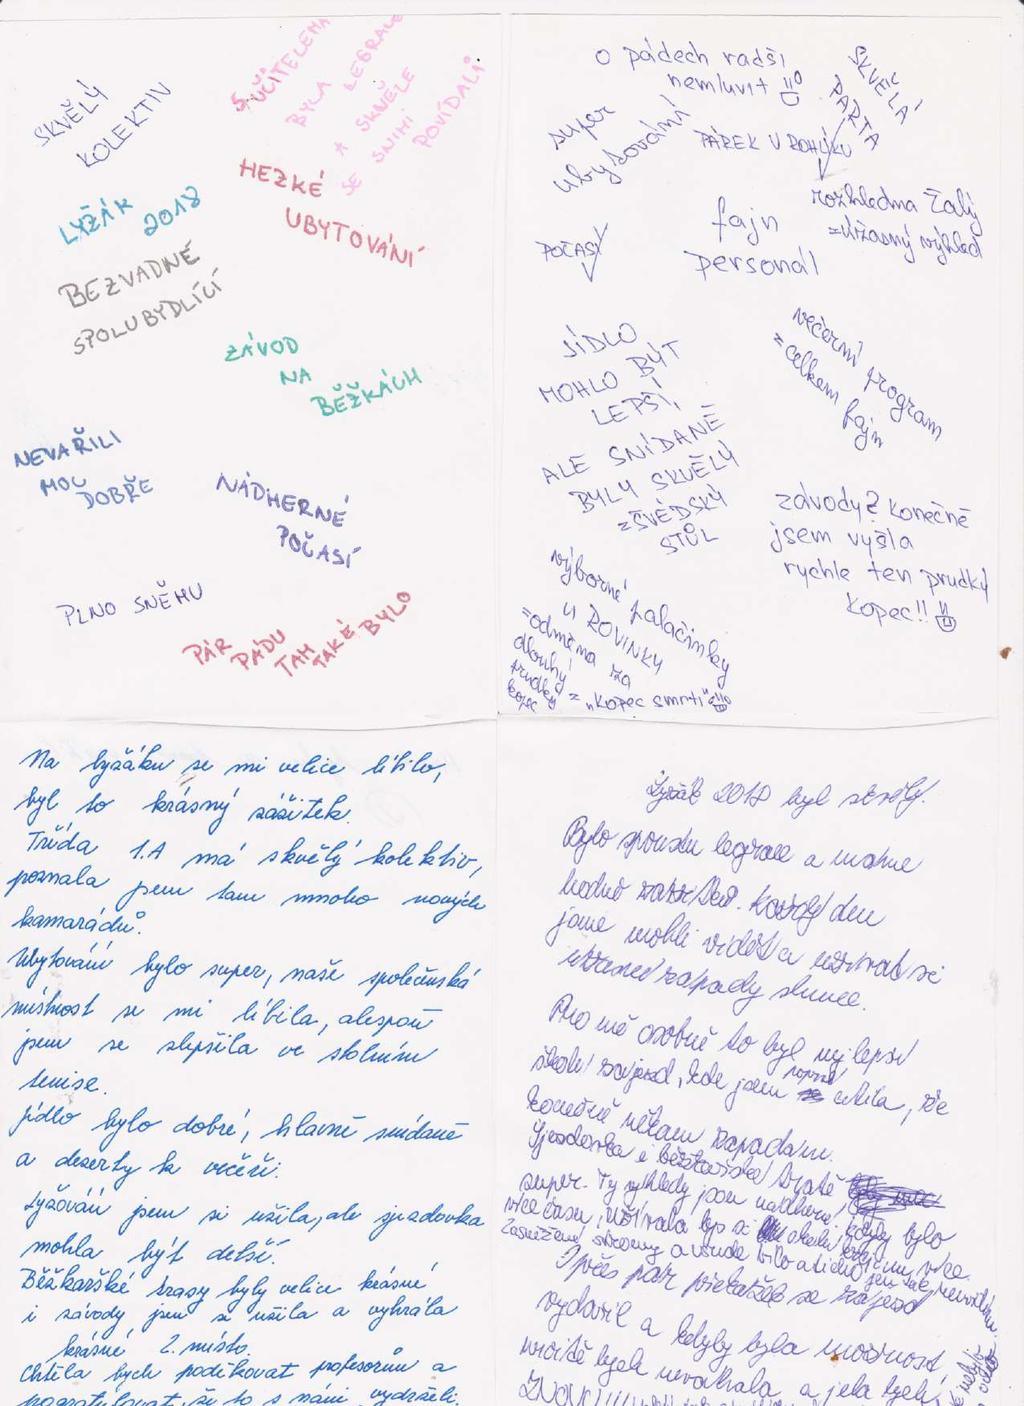 SKVĚLÝ
KOLEKTIV
S UČITELEMA
BYLA LEGRACE
A SKVĚLE
SE S NIMI
POVÍDALO
HEZKÉ
UBYTOVÁNÍ
LYŽÁK
2018
BEZVADNÉ
SPOLUBYDLÍCÍ
ZÁVOD
NA
BĚŽKÁCH
NEVAŘILI
MOC
DOBŘE
NÁDHERNÉ
POČASÍ
PLNO SNĚHU
PÁR PÁDU TAM TAKÉ BYLO
o pádech radši
nemluvit
SKVĚLÁ
PARTA
super
ubytování
PÁREK V ROHLÍKU
rozhledna Žalý
=úžasný výhled
fajn
personál
POČASÍ
JÍDLO
MOHLO BÝT
LEPŠÍ,
ALE SNÍDANĚ
BYLY SKVĚLÝ
=ŠVÉDSKÝ
STŮL
večerní program
=celkem fajn
závody? Konečně
jsem vyšla
rychle ten prudký
kopec!!
výborné palačinky
U ROVINKY
=odměna za
dlouhý
prudký
kopec = „Kopec smrti"
Na lyžáku se mi velice líbilo,
byl to krásný zážitek.
Třída 1.A má skvělý kolektiv,
poznala jsem tam mnoho nových
kamarádů.
Ubytování bylo super, naše společenská
místnost se mi líbila, alespoň
jsem se zlepšila ve stolním
tenise.
Jídlo bylo dobré, hlavně snídaně
a dezerty k večeři.
Lyžování jsem si užila, ale sjezdovka
mohla být delší.
Běžkařské trasy byly velice krásné
i závody jsem si užila a vyhrála
krásné 2. místo.
Chtěla bych poděkovat profesorům a
pogratulovat, že to s námi vydrželi.
Lyžák 2018 byl skvělý.
Bylo spoustu legrace a
hodně Každý den
jsme mohli vidět a užívat si
západy slunce.
Pro mě osobně to byl nejlepší
školní zájezd, kde jsem poprvé cítila, že
konečně někam zapadám.
Sjezdovka i běžkařské tratě
super. Ty výhledy jsou nádherné. Kdyby bylo
více času, užívala bych si okolní krajinu více.
Zasněžené stromy a všude bílo a ticho jen tak neuvidíme.
I přes pár překážek se zájezd
vydařil a kdyby byla možnost,
určitě bych neváhala a jela bych
ZNOVU!!!!!!!